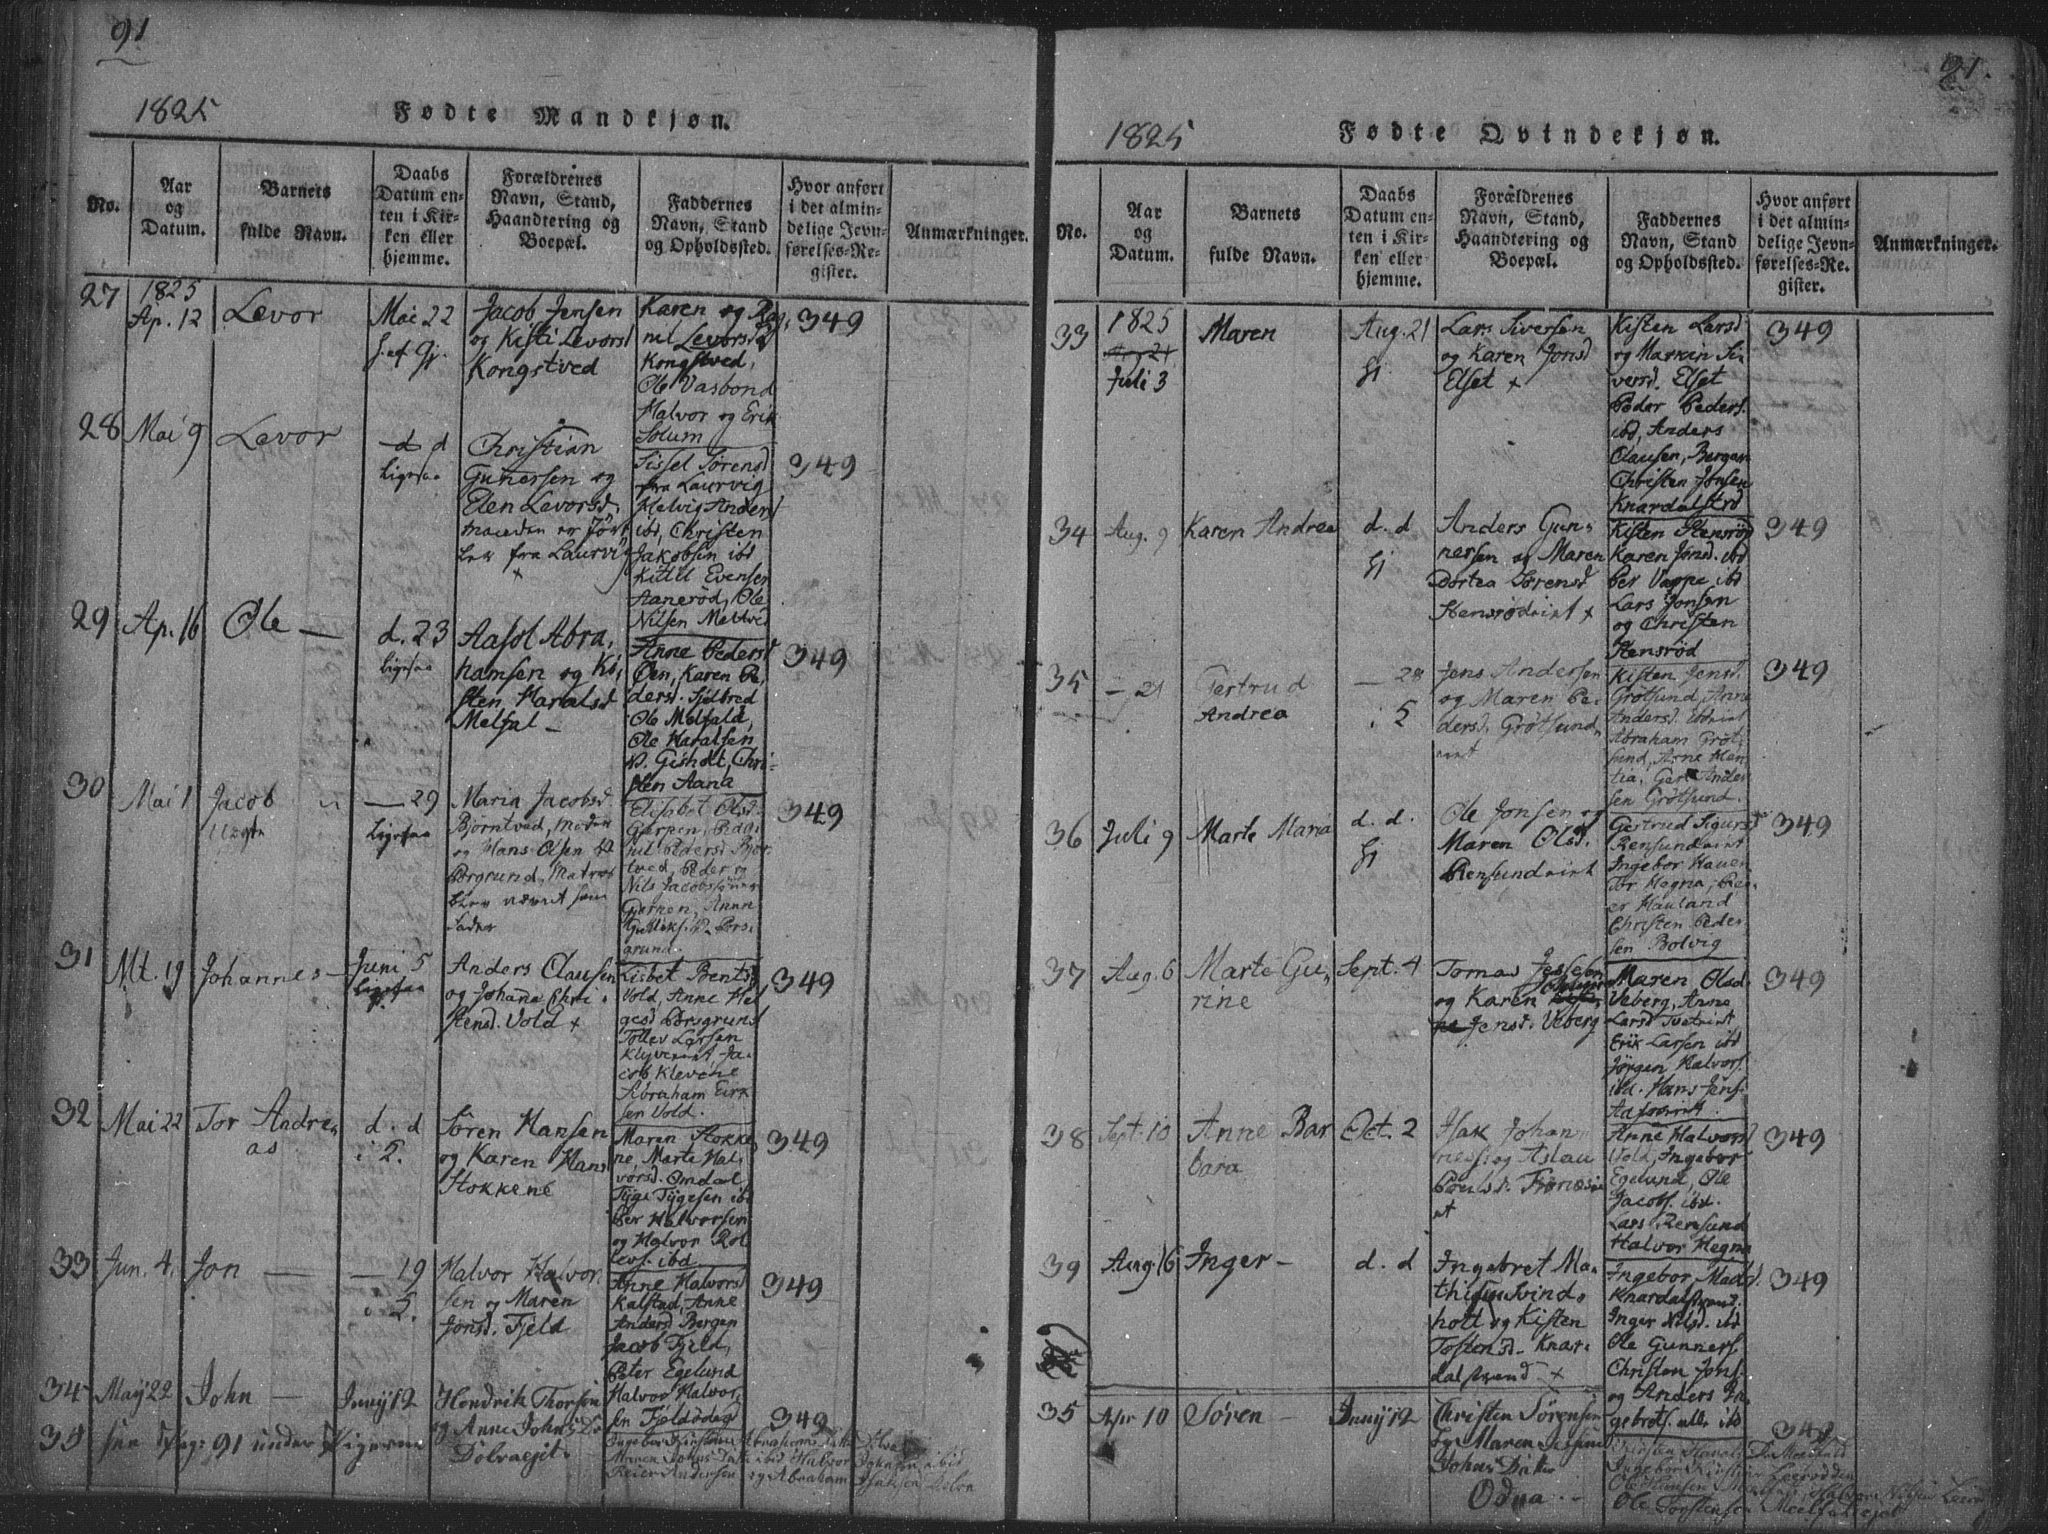 91
1825
Fødte Mandkjøn.
No.
Aar
og
Datum.
Barnets
fulde Navn.
Daabs
Datum en-
ten i Kir-
ken eller
hjemme.
Forældrenes
Navn, Stand,
Haandtering og
Boepæl.
Faddernes
Navn, Stand
og Opholdssted.
Hvor anført
i det almin-
delige Jevn-
førelses-Re-
gister.
Anmærkninger.
27
1825
Ap. 12
Levor
Mai 22
Jacob Jensen
og Kisti Levorsd
Kongstved
Karen og Rag-
nil Levorsd
Kongstved,
Ole Vasbond
Halvor og Erik
Solum
349
28
Mai 9
Levor
d d
Ligesaa
Christian
Gunersen og
Elen Levorsd.
fra Laurvig
Sissel Sørensd
fra Laurvig
Helvig Andersd
ibd, Christen
Jakobsen ibd
Kittil Evensen
Aanerød, Ole
Nilsen Meltvid
349
29
Ap. 16
Ole —
d. 23
Ligesaa
Aasol Abra-
hamsen og Ki-
sten Haralsd
Melfal —
Anne Pedersd
Oen, Karen Pe-
dersd.
Ole Melfald,
Ole Haralsen
Gisholt, Chri-
sten Aana
349
30
Mai 1
Jacob
Uægte
— 29
Ligesaa
Maria Jacobsd.
Bjørntved, Moder
og Hans Olsen
Porsgrund, Matros
blev nævnt som
Fader
Elisabet Olsd.
Garpen,
nil Pedersd Bjør-
tved, Peder og
Nils Jacobssønner
Garpen, Anne
349
31
Mt. 19
Johannes —
Juni 5
Ligesaa
Anders Clausen
og Johana Chri-
stensd. Vold +
Lisbet Brentsd
Vold, Anne
Porsgrund
Tollev Larsen
Klyveeiet Ja-
cob Klevene
Abraham Eirk
sen Vold.
349
32
Mai 22
Tor Andre-
as
d. d
i S.
Søren Hansen
og Karen Hansd
Stokkene
Maren Stokke-
ne, Marte Hal-
vorsd. Omdal,
Tyge Tygesen ibd
Per Halvorsen
og Halvor Rol
levs. ibd
349
33
Jun. 4.
Jon —
— 19
i S.
Halvor Halvor
sen og Maren
Jonsd. Fjeld
Anne Halvorsd
Kalstad, Anne
Andersd Bergan
Jacob Fjeld,
Peter Egelund
Halvor Halvor-
sen Fjeldodeg
349
34
May 22
John —
Juny 12
Hendrik Thorsen
og Anne Johns D.
Dolvaejet
349
35
see Pag: 91 under Pigerne
91.
1825
Fødte Qvindekjøn.
No.
Aar
og
Datum.
Barnets
fulde Navn.
Daabs
Datum en-
ten i Kir-
ken eller
hjemme.
Forældrenes
Navn, Stand,
Haandtering og
Boepæl.
Faddernes
Navn, Stand
og Opholdssted.
Hvor anført
i det almin-
delige Jevn-
førelses-Re-
gister.
Anmærkninger.
33
1825
Juli 3
Maren
Aug. 21
Gj
Lars Siversen
og Karen Jonsd
Elset +
Kisten Larsd
og Marken Si-
versd. Elset
Peder Peders.
ibd, Anders
Clausen, Bergan
Christen Jonsen
Knardalstrd
349
34
Aug. 9
Karen Andrea
d. d
Gj
Anders Gun-
nersen og Maren
Dortea Sørensd
Stensrødeiet +
Kisten Stensrød
Karen Jonsd. ibd
Per Vappe ibd
Lars Jonsen
og Christen
Stensrød
349
35
— 21
Gertrud
Andrea
— 28
i S
Jens Andersen
og Maren Pe-
dersd. Grøtsund-
eiet
Kisten Jensd.
Grøtsund, Anne
Andersd.
Abraham Grøt-
sund, Arne
Gert Ander
sen Grøtsund.
349
36
Juli 9
Marte Maria
d. d.
Gj
Ole Jonsen og
Maren Olsd.
Rensundeiet
Gertrud Sigursd
Rensundeiet
Ingebor Hauen
Tor Hegna, Pe-
er Hauland
Christen Peder
sen Bolvig
349
37
Aug. 6
Marte Gu-
rine
Sept. 4
Tomas Jessesen
og Karen
Jensd. Veberg
Maren Olsd
Veberg, Anne
Larsd Tveteiet
Erik Larsen ibd
Jørgen Halvors.
ibd. Hans Jens.
349
38
Sept. 10
Anne Bar
bara
Oct. 2
Isak Johan
ness. og Aslau
Anne Halvorsd
Vold, Ingebor
Egelund, Ole
Jacobs. ibd.
Lars Rensund
Halvor Hegna
349
39
Aug. 16
Inger —
d. d
Ingebret Ma-
thisen Svind-
holt og Kisten
Tostensd. Knar-
dalstrand +
Ingebor Madsd.
Knardalstrand.
Inger Nilsd. ibd
Ole Gunners.
Christen Jons.
og Anders In
gebrets. alle ibd
349
35
Apr 10
Søren —
Juny 12
Christen Sørensen
og Maren
Johns Datter
Odna
349